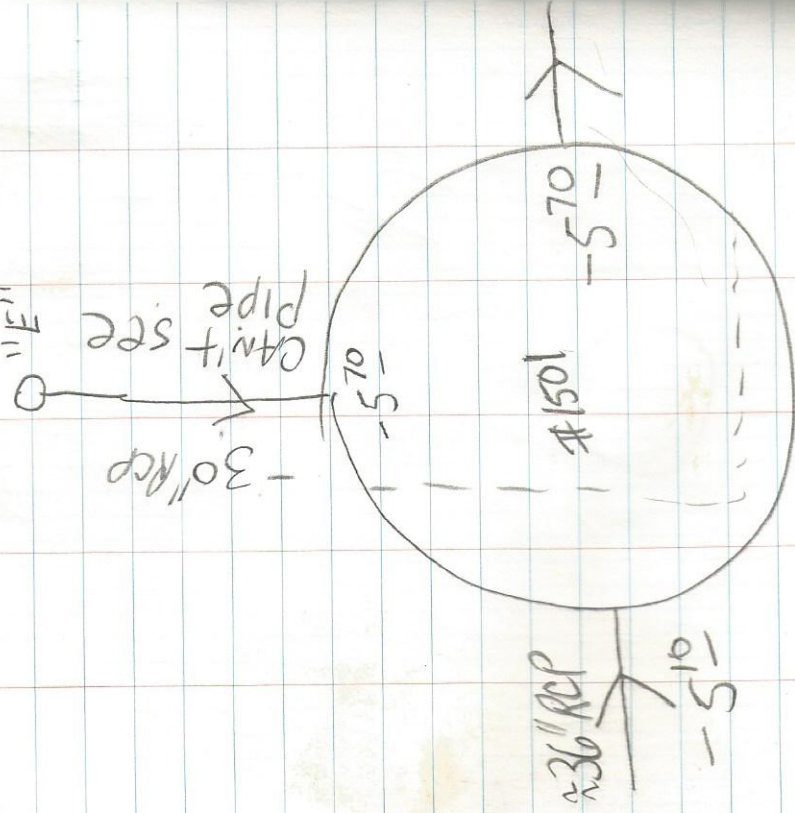 "E"
CAN'T SEE
PIPE
-30" RCP
-5 70
-5 70
#1501
≈36" RCP
-5 10